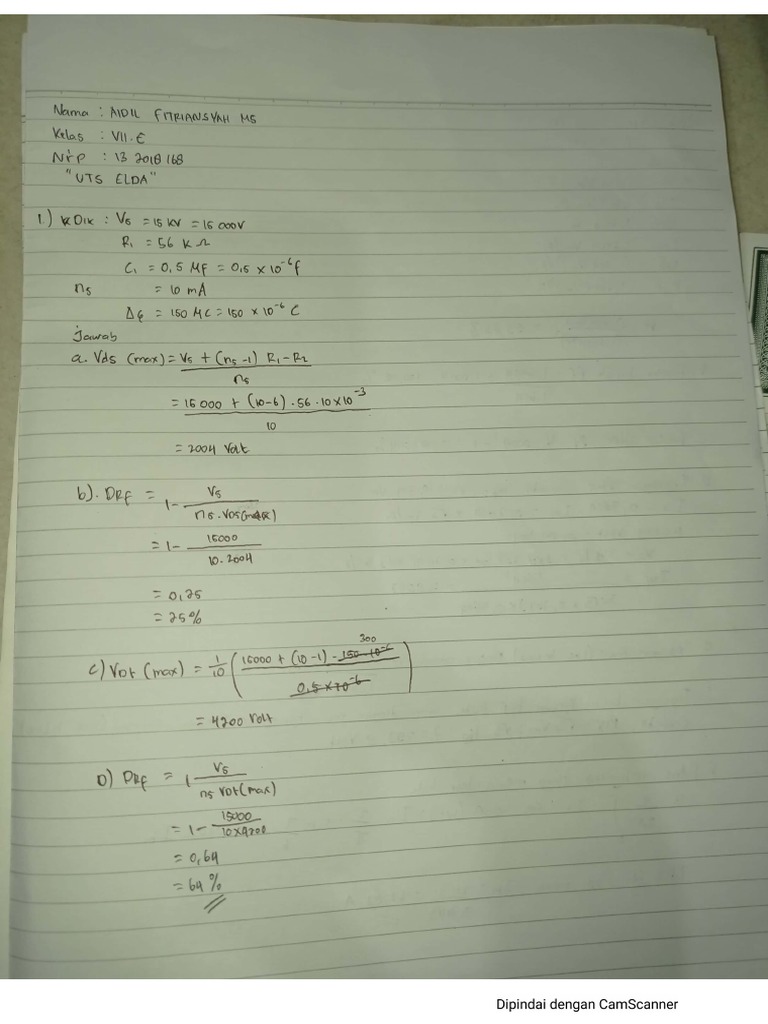 Nama : AIDIL FITRIANSYAH MS
Kelas : VII.E
Nrp : 13 2018 168
"UTS ELDA"
1.) Dik : Vs = 15 KV = 15 000V
R1 = 56 K Ω
C1 = 0,5 MF = 0,5 × 10^-6 f
ns = 10 mA
Δq = 150 MC = 150 × 10^-6 C
Jawab
a. Vds (max) = Vs + (ns -1) R1 - R2
ns
= 15 000 + (10-6) . 56 . 10 × 10^-3
10
= 2004 Volt
b). DRf = 1 - Vs
ns . VDS(max)
= 1 - 15000
10 . 2004
= 0,25
= 25%
300
c) VDt (max) = 1/10 ( 15000 + (10 -1) - 150 . 10^-6
0,5 × 10^-6 )
= 4200 Volt
D) DRf = 1 Vs
ns VDt(max)
= 1 - 15000
10 × 4200
= 0,64
= 64 %
Dipindai dengan CamScanner